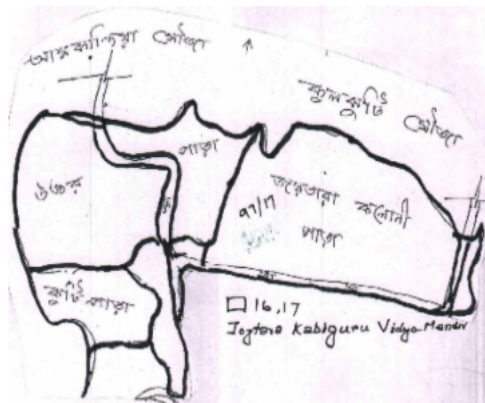 মৌজা
কুলকুটি মৌজা
পাড়া
উত্তর
জয়তারা কলোনী
পাড়া
কুটি পাড়া
16,17
Joytara Kabiguru Vidya Mandir